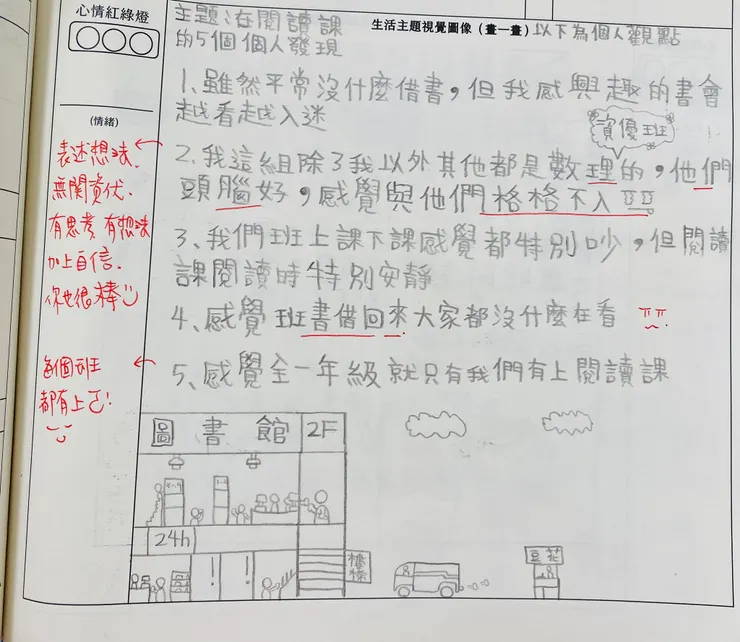 心情紅綠燈
(情緒)
生活主題視覺圖像（畫一畫）以下為個人觀點
主題:在閱讀課
的5個個人發現
1、雖然平常沒什麼借書，但我感興趣的書會
越看越入迷
資優班
2、我這組除了我以外其他都是數理的，他們
頭腦好，感覺與他們格格不入
3、我們班上課下課感覺都特別吵，但閱讀
課閱讀時特別安靜
4、感覺班書借回來大家都沒什麼在看
5、感覺全一年級就只有我們有上閱讀課
表述想法
無關資優、
有思考有想法
加上自信、
你也很棒
每個班
都有上
圖書館 2F
24h
樓梯
豆花